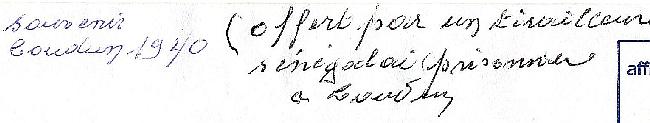 souvenir
Loudun 1940
(offert par un tirailleur
sénégalai prisonnier
a Loudun
aff